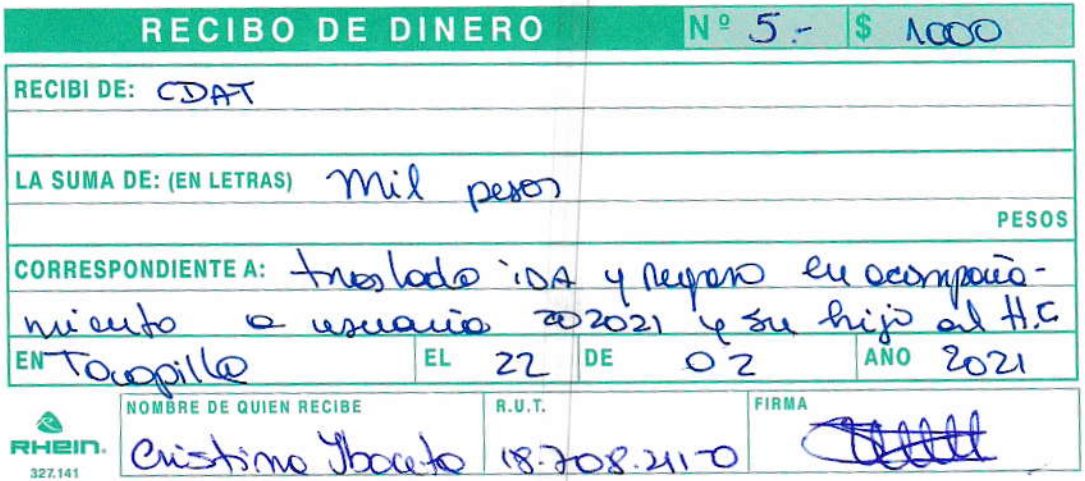 RECIBO DE DINERO Nº 5.- $ 1000
RECIBI DE: CDAT
LA SUMA DE: (EN LETRAS) Mil pesos
PESOS
CORRESPONDIENTE A: traslado iDA y regreso en acompaña-
miento a usuaria 202021 y su hijo al H.C
EN Tocopilla EL 22 DE 02 AÑO 2021
NOMBRE DE QUIEN RECIBE R.U.T. FIRMA
RHEIN. Cristina 18.708.211-0
327.141